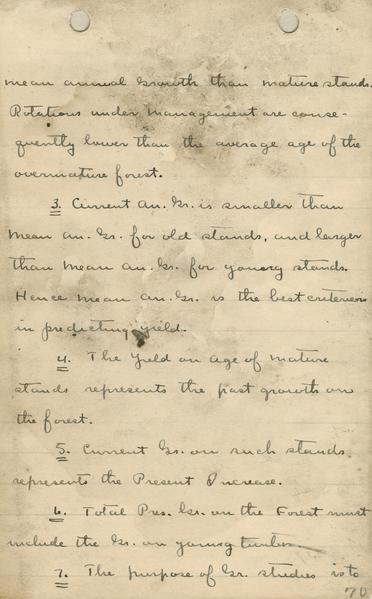 mean annual Growth than mature stands.
Rotations under management are conse-
quently lower than the average age of the
overmature forest.
3. Current an. Gr. is smaller than
mean an. Gr. for old stands, and larger
than mean an. Gr. for young stands.
Hence mean an. Gr. is the best criterion
in predicting yield.
4. The Yield on age of mature
stands represents the past growth on
the forest.
5. Current Gr. on such stands
represents the Present Increase.
6. Total Pres. Gr. on the Forest must
include the Gr. on young timber
7. The purpose of Gr. studies is to
70